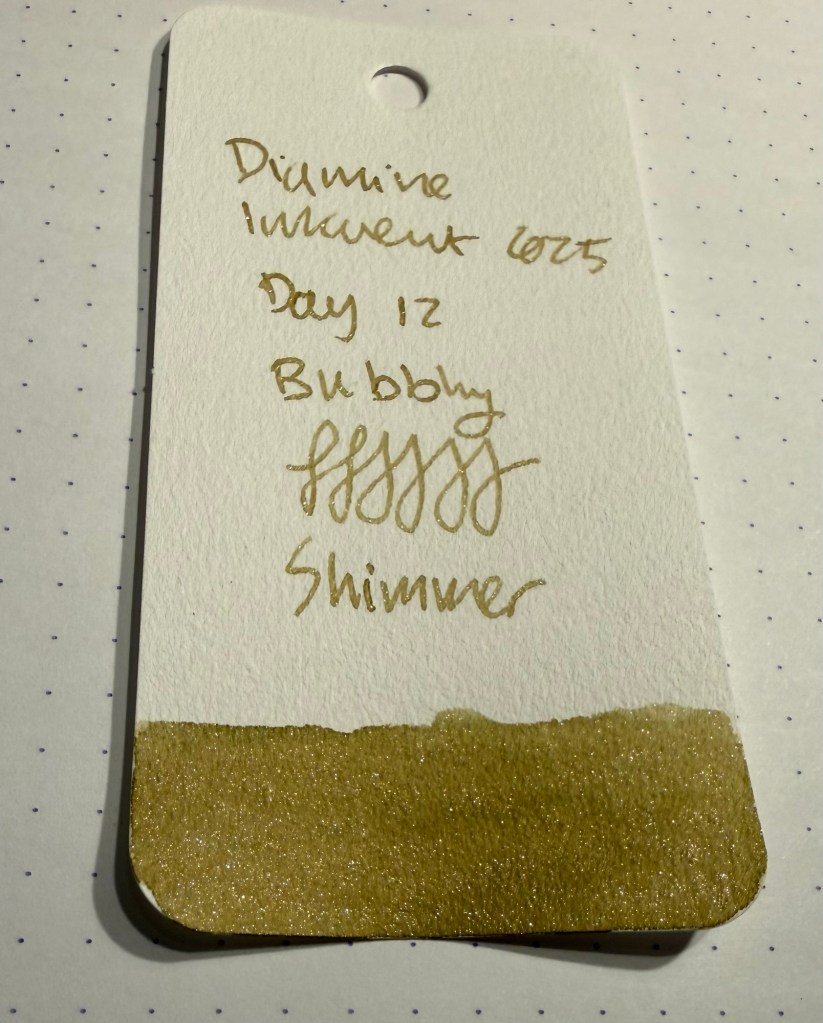 Diamine
Inkvent 2025
Day 12
Bubbly
Shimmer